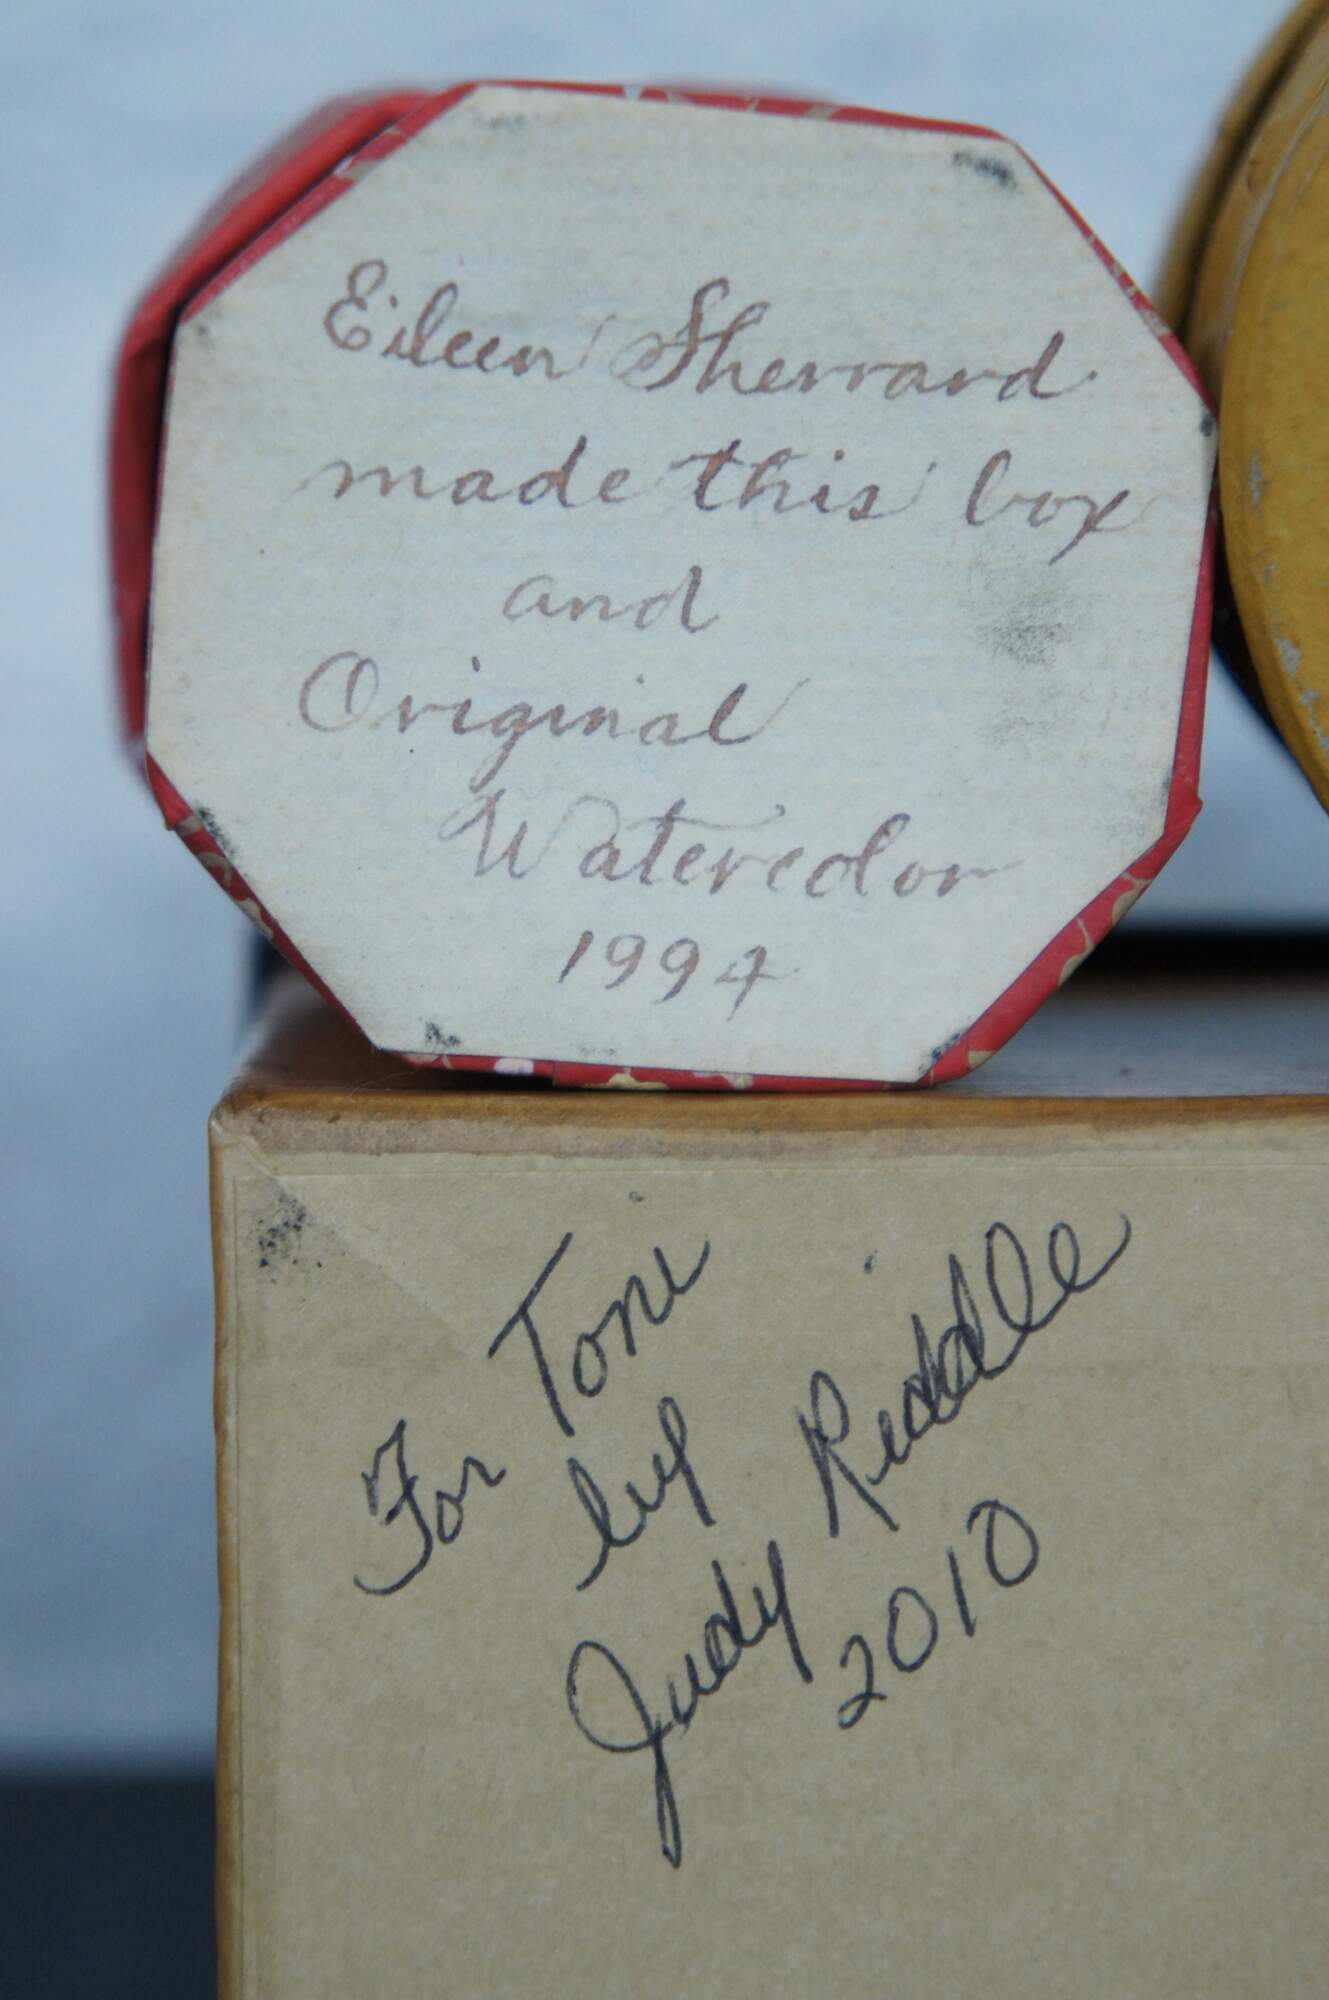 Eileen Sherrard
made this box
and
Original
Watercolor
1994
For Toni
by
Judy Riddle
2010